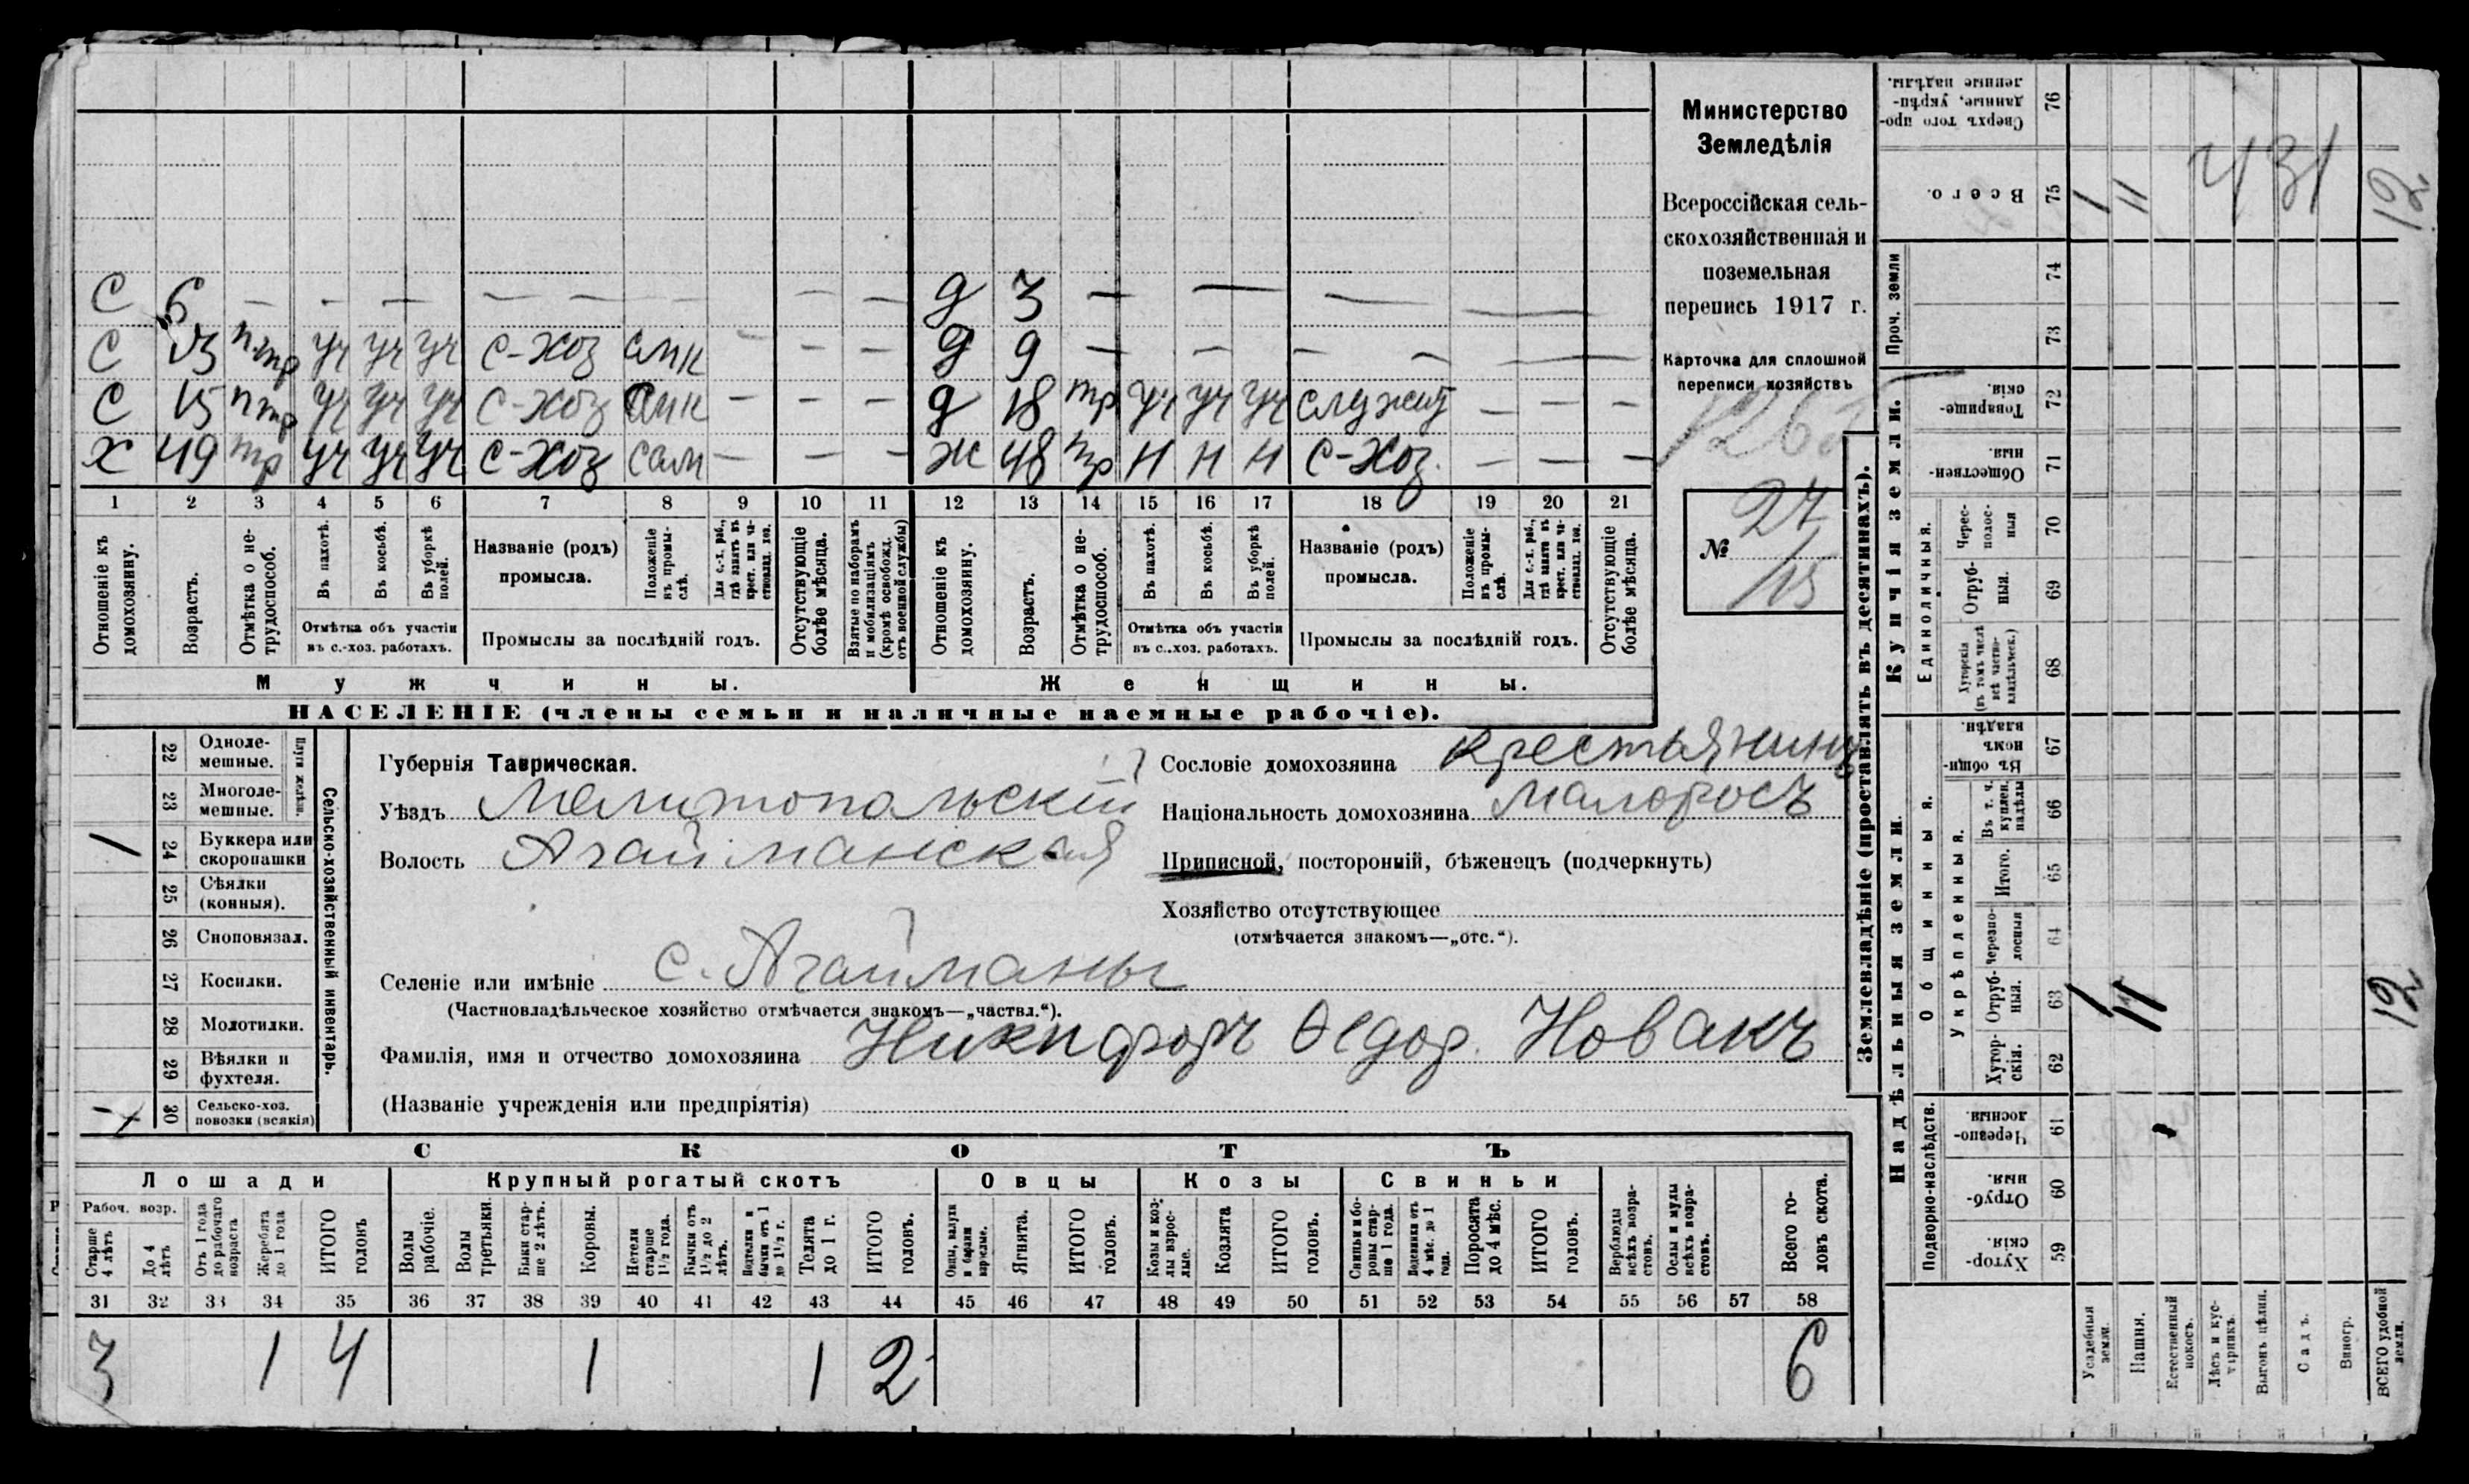 С 6 — — — — — — — — — д 3 — — — — —
С 13 п тр уч уч уч с-хоз смн — — — д 9 — — — — — —
С 15 п тр уч уч уч с-хоз смн — — — д 18 тр уч уч уч служит — — —
Х 49 тр уч уч уч с-хоз сам — — — ж 48 тр н н н с-хоз. — — —
1 2 3 4 5 6 7 8 9 10 11 12 13 14 15 16 17 18 19 20 21
Отношеніе къ домохозяину.
Возрастъ.
Отмѣтка о не-
трудоспособ.
Въ пахотѣ.
Въ косьбѣ.
Въ уборкѣ полей.
Отмѣтка объ участіи
въ с.-хоз. работахъ.
Названіе (родъ)
промысла.
Положеніе въ промы-
слѣ.
Для с.-х. раб., гдѣ занятъ въ крест. или ча-
стновлад. хоз.
Промыслы за послѣдній годъ.
Отсутствующіе болѣе мѣсяца.
Взятые по наборамъ и мобилизаціямъ (кромѣ освобожд. отъ военной службы)
Отношеніе къ домохозяину.
Возрастъ.
Отмѣтка о не-
трудоспособ.
Въ пахотѣ.
Въ косьбѣ.
Въ уборкѣ полей.
Отмѣтка объ участіи
въ с.-хоз. работахъ.
Названіе (родъ)
промысла.
Положеніе въ промы-
слѣ.
Для с.-х. раб., гдѣ занята въ крест. или ча-
стновлад. хоз.
Промыслы за послѣдній годъ.
Отсутствующіе болѣе мѣсяца.
Мужчины. Женщины.
НАСЕЛЕНІЕ (члены семьи и наличные наемные рабочіе).
Министерство
Земледѣлія
Всероссійская сель-
скохозяйственная и
поземельная
перепись 1917 г.
Карточка для сплошной
переписи хозяйствъ
№ 27
15
Сельско-хозяйственный инвентарь.
22 Одноле-
мешные.
23 Многоле-
мешные.
1 24 Буккера или
скоропашки
25 Сѣялки
(конныя).
26 Сноповязал.
27 Косилки.
28 Молотилки.
29 Вѣялки и
фухтеля.
30 Сельско-хоз.
повозки (всякія)
Губернія Таврическая.
Уѣздъ Мелитопольскій
Волость Агайманская
Селеніе или имѣніе с. Агайманы
(Частновладѣльческое хозяйство отмѣчается знакомъ—„частвл.“).
Фамилія, имя и отчество домохозяина Никифоръ Ѳедор. Новакъ
(Названіе учрежденія или предпріятія)
Сословіе домохозяина крестьянинъ
Національность домохозяина Малоросъ
Приписной, посторонній, бѣженецъ (подчеркнуть)
Хозяйство отсутствующее
(отмѣчается знакомъ—„отс.“).
СКОТЪ
Лошади Крупный рогатый скотъ Овцы Козы Свиньи
Рабоч. возр.
Старше 4 лѣтъ
До 4 лѣтъ
Отъ 1 года до рабочаго возраста
Жеребята до 1 года
ИТОГО головъ
Волы рабочіе.
Волы третьяки.
Быки стар-
ше 2 лѣтъ.
Коровы.
Нетели старше 1½ года.
Бычки отъ 1½ до 2 лѣтъ.
Телята до 1 г.
ИТОГО головъ.
Ягнята.
ИТОГО головъ.
Козы и коз-
лы взрос-
лые.
Козлята
ИТОГО головъ.
Свиньи и бо-
ровы стар-
ше 1 года.
Поросята до 4 мѣс.
ИТОГО головъ.
Верблюды всѣхъ возра-
стовъ.
Ослы и мулы всѣхъ возра-
стовъ.
Всего го-
ловъ скота.
31 32 33 34 35 36 37 38 39 40 41 42 43 44 45 46 47 48 49 50 51 52 53 54 55 56 57 58
3 1 4 1 1 2 6
Землевладѣніе (проставлять въ десятинахъ).
Купчія земли.
Надѣльныя земли.
Сверхъ того про-
данные, укрѣп-
ленные надѣлы. 76
Всего. 75 1 11 12
431
Проч. земли 74
73
Товарище-
скія. 72
Обществен-
ныя. 71
Единоличныя.
Черес-
полос-
ныя 70
Отруб-
ныя. 69
Хуторскія (въ томъ числѣ всѣ частно-
владѣльческ.) 68
Общинныя.
Въ общин-
номъ
владѣн. 67
Укрѣпленныя.
Въ т. ч. куплен. надѣлы 66
Итого. 65
Черезпо-
лосныя 64
Отруб-
ныя. 63 1 11 12
Хутор-
скія. 62
Подворно-наслѣдств.
Черезпо-
лосныя. 61
Отруб-
ныя. 60
Хутор-
скія. 59
Усадебныя земли.
Пашня.
Естественный покосъ.
Лѣсъ и кус-
тарникъ.
Выгонъ цѣлин.
Садъ.
Виногр.
ВСЕГО удобной земли.